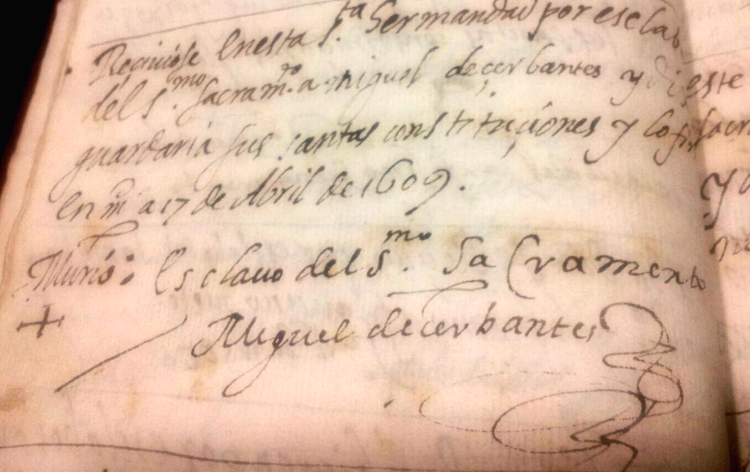 Reciuiose Enesta S.ta Hermandad por esclabo
del S.mo Sacram.to a miguel decerbantes y dijo este
guardaria sus santas constituçiones y lo fir
En m.d a 17 de Abril de 1609.
Murio: Esclauo del S.mo Sacramento
Miguel decerbantes